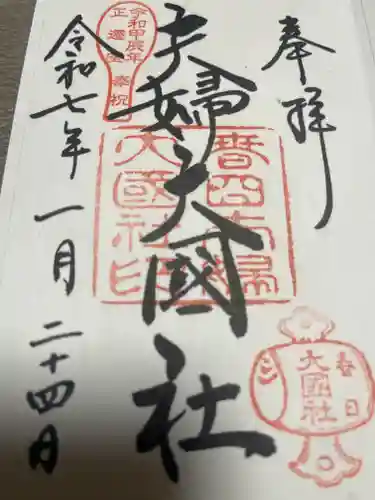 奉拝
夫婦大國社
令和七年一月二十四日
令和甲辰年
正遷宮
奉祝
春日
大國社